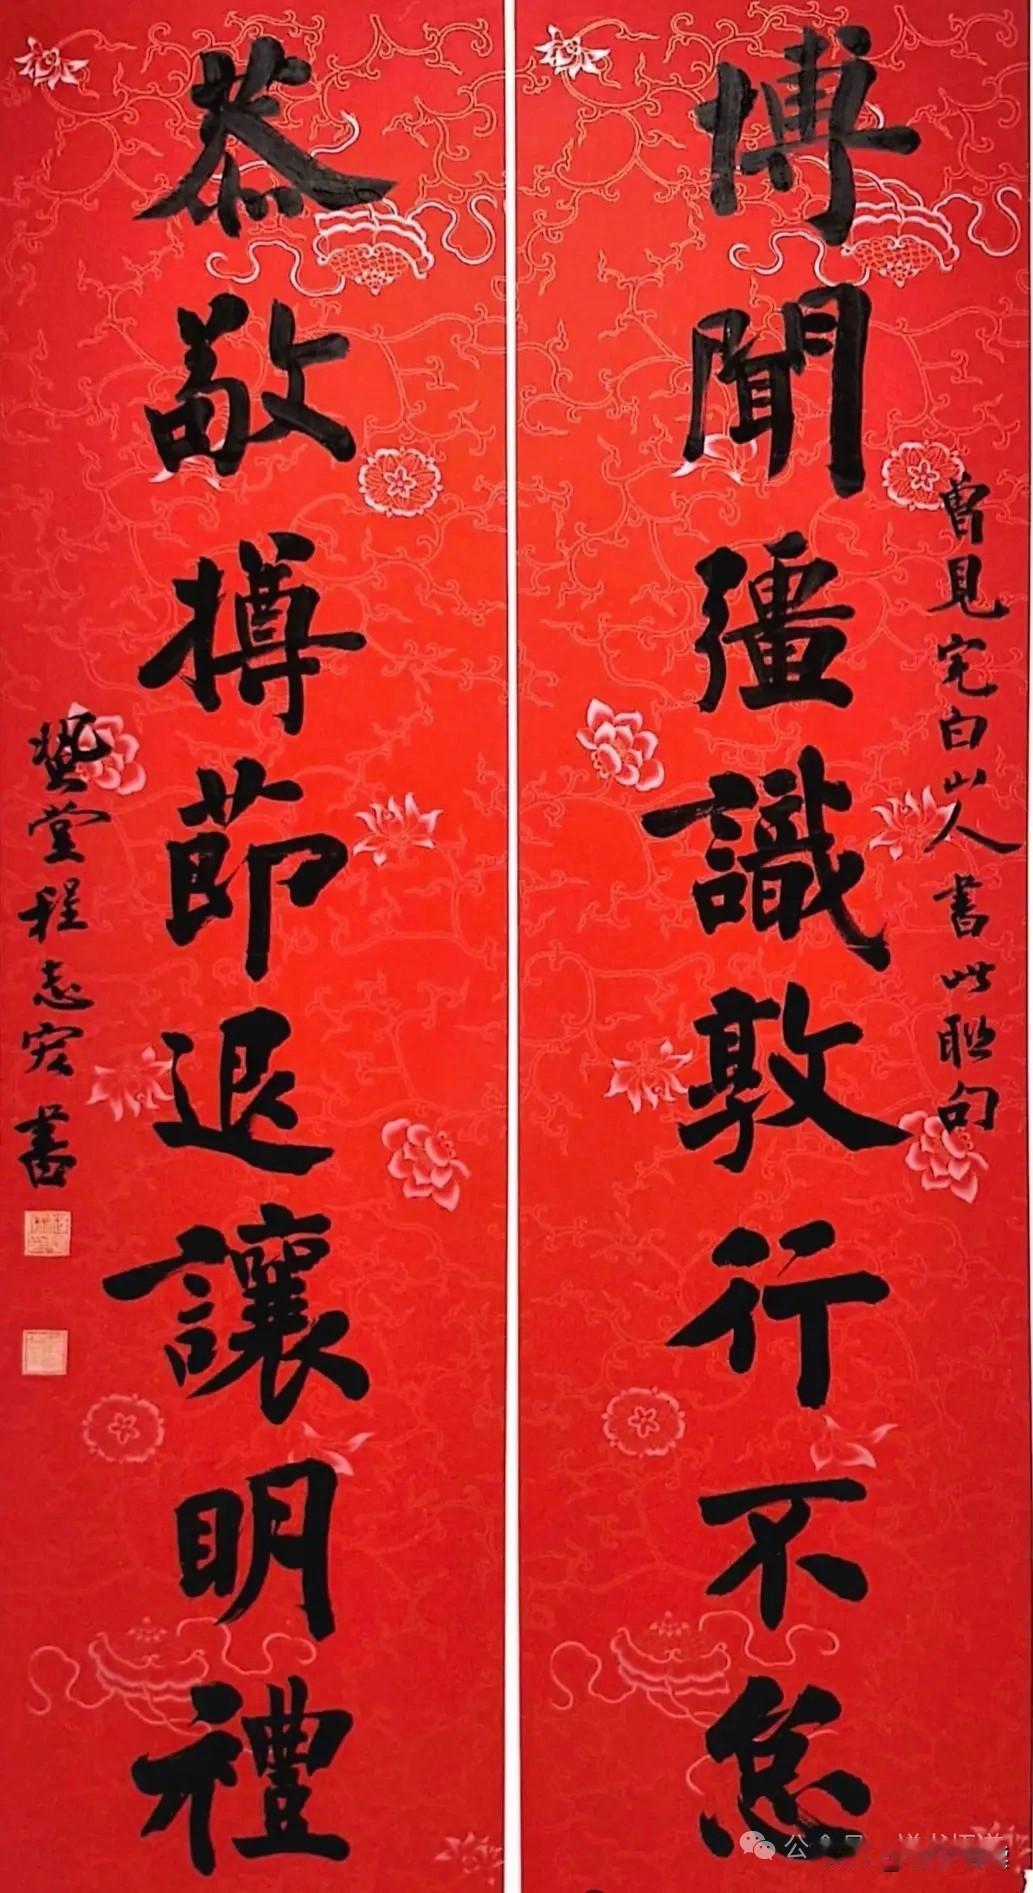 博聞彊識敦行不怠
曾見完白山人書此聯句
恭敬撙節退讓明禮
藝堂程志宏書
公众号